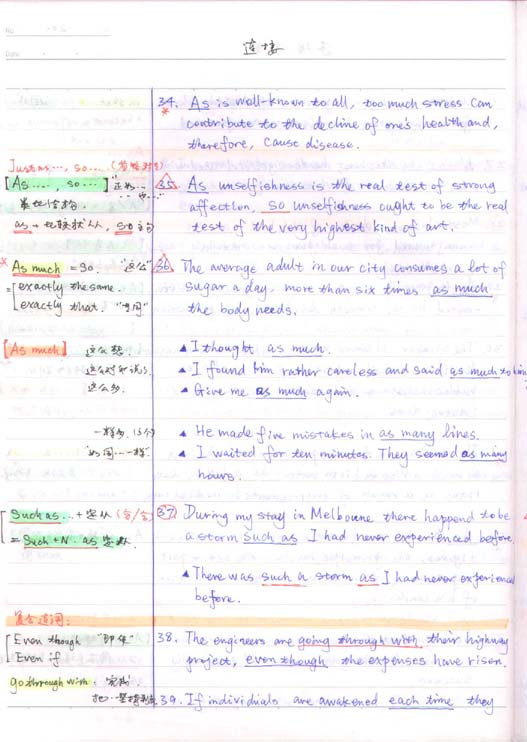 No
Date
连接
34. As is well-known to all, too much stress can
contribute to the decline of one's health and,
therefore, cause disease.
Just as ..., so ...
[As ......, so ...]
as → 比较状从, so 主句
35. As unselfishness is the real test of strong
affection, so unselfishness ought to be the real
test of the very highest kind of art.
As much = so. "这么"
= exactly the same.
exactly that.
36. The average adult in our city consumes a lot of
sugar a day. more than six times as much
the body needs.
[As much] 这么想.
▲ I thought as much.
▲ I found him rather careless and said as much to him
这么多.
▲ Give me as much again.
▲ He made five mistakes in as many lines.
"如同...一样"
▲ I waited for ten minutes. They seemed as many
hours.
Such as ... + 定从
= Such + N. as 定从.
37. During my stay in Melboune there happend to be
a storm such as I had never experienced before.
▲ There was such a storm as I had never experienced
before.
复合连词:
Even though "即使"
Even if
38. The engineers are going through with their highway
project, even though the expenses have risen.
go through with.
39. If individials are awakened each time they